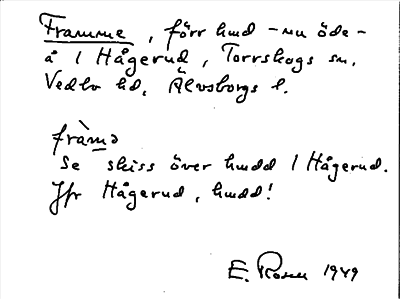 Framme, förr hmd – nu öde –
å 1 Hågerud, Torrskogs sn.
Vedbo hd, Älvsborgs l.
fràmə
Se skiss över hmdd 1 Hågerud.
Jfr Hågerud, hmdd!
E. Rosen 1949